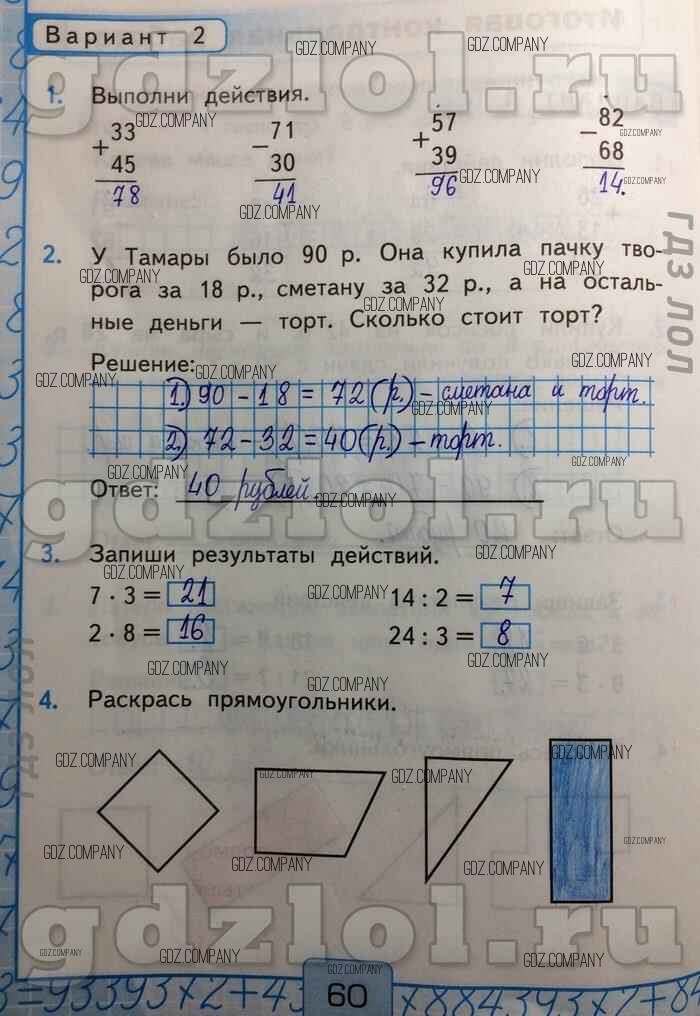 Вариант 2
1. Выполни действия.
+ 33 45 78
− 71 30 41
+ 57 39 96
− 82 68 14.
2. У Тамары было 90 р. Она купила пачку тво-
рога за 18 р., сметану за 32 р., а на осталь-
ные деньги — торт. Сколько стоит торт?
Решение:
1.) 90 - 18 = 72 (р.) - сметана и торт.
2.) 72 - 32 = 40 (р.) - торт.
Ответ: 40 рублей.
3. Запиши результаты действий.
7 · 3 = 21 14 : 2 = 7
2 · 8 = 16 24 : 3 = 8
4. Раскрась прямоугольники.
60
gdzlol.ru
gdzlol.ru
gdzlol.ru
ГДЗ ЛОЛ
ГДЗ ЛОЛ
GDZ.COMPANY